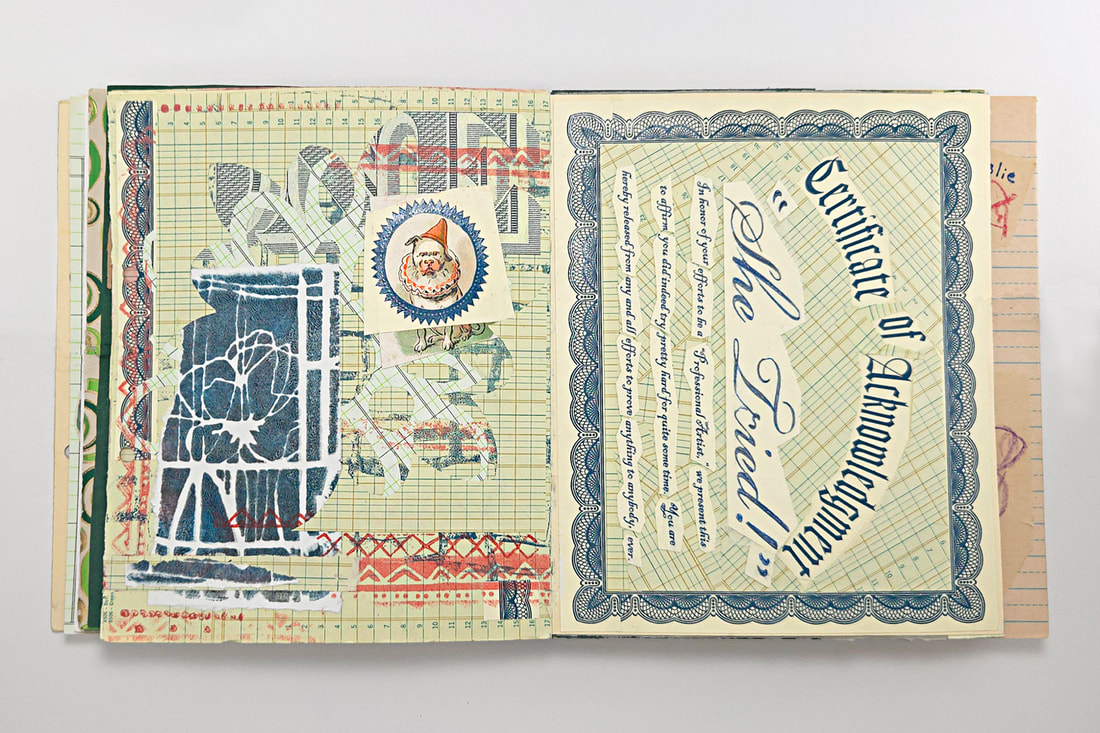 Certificate of Acknowledgment
“She Tried!”
In honor of your efforts to be a “Professional Artist,” we present this
to affirm you did indeed try pretty hard for quite some time. You are
hereby released from any and all efforts to prove anything to anybody, ever.
slie